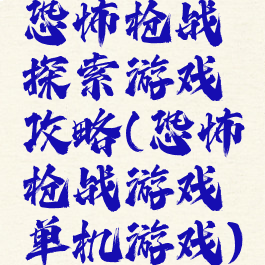 恐怖枪战
探索游戏
攻略(恐怖
枪战游戏
单机游戏)